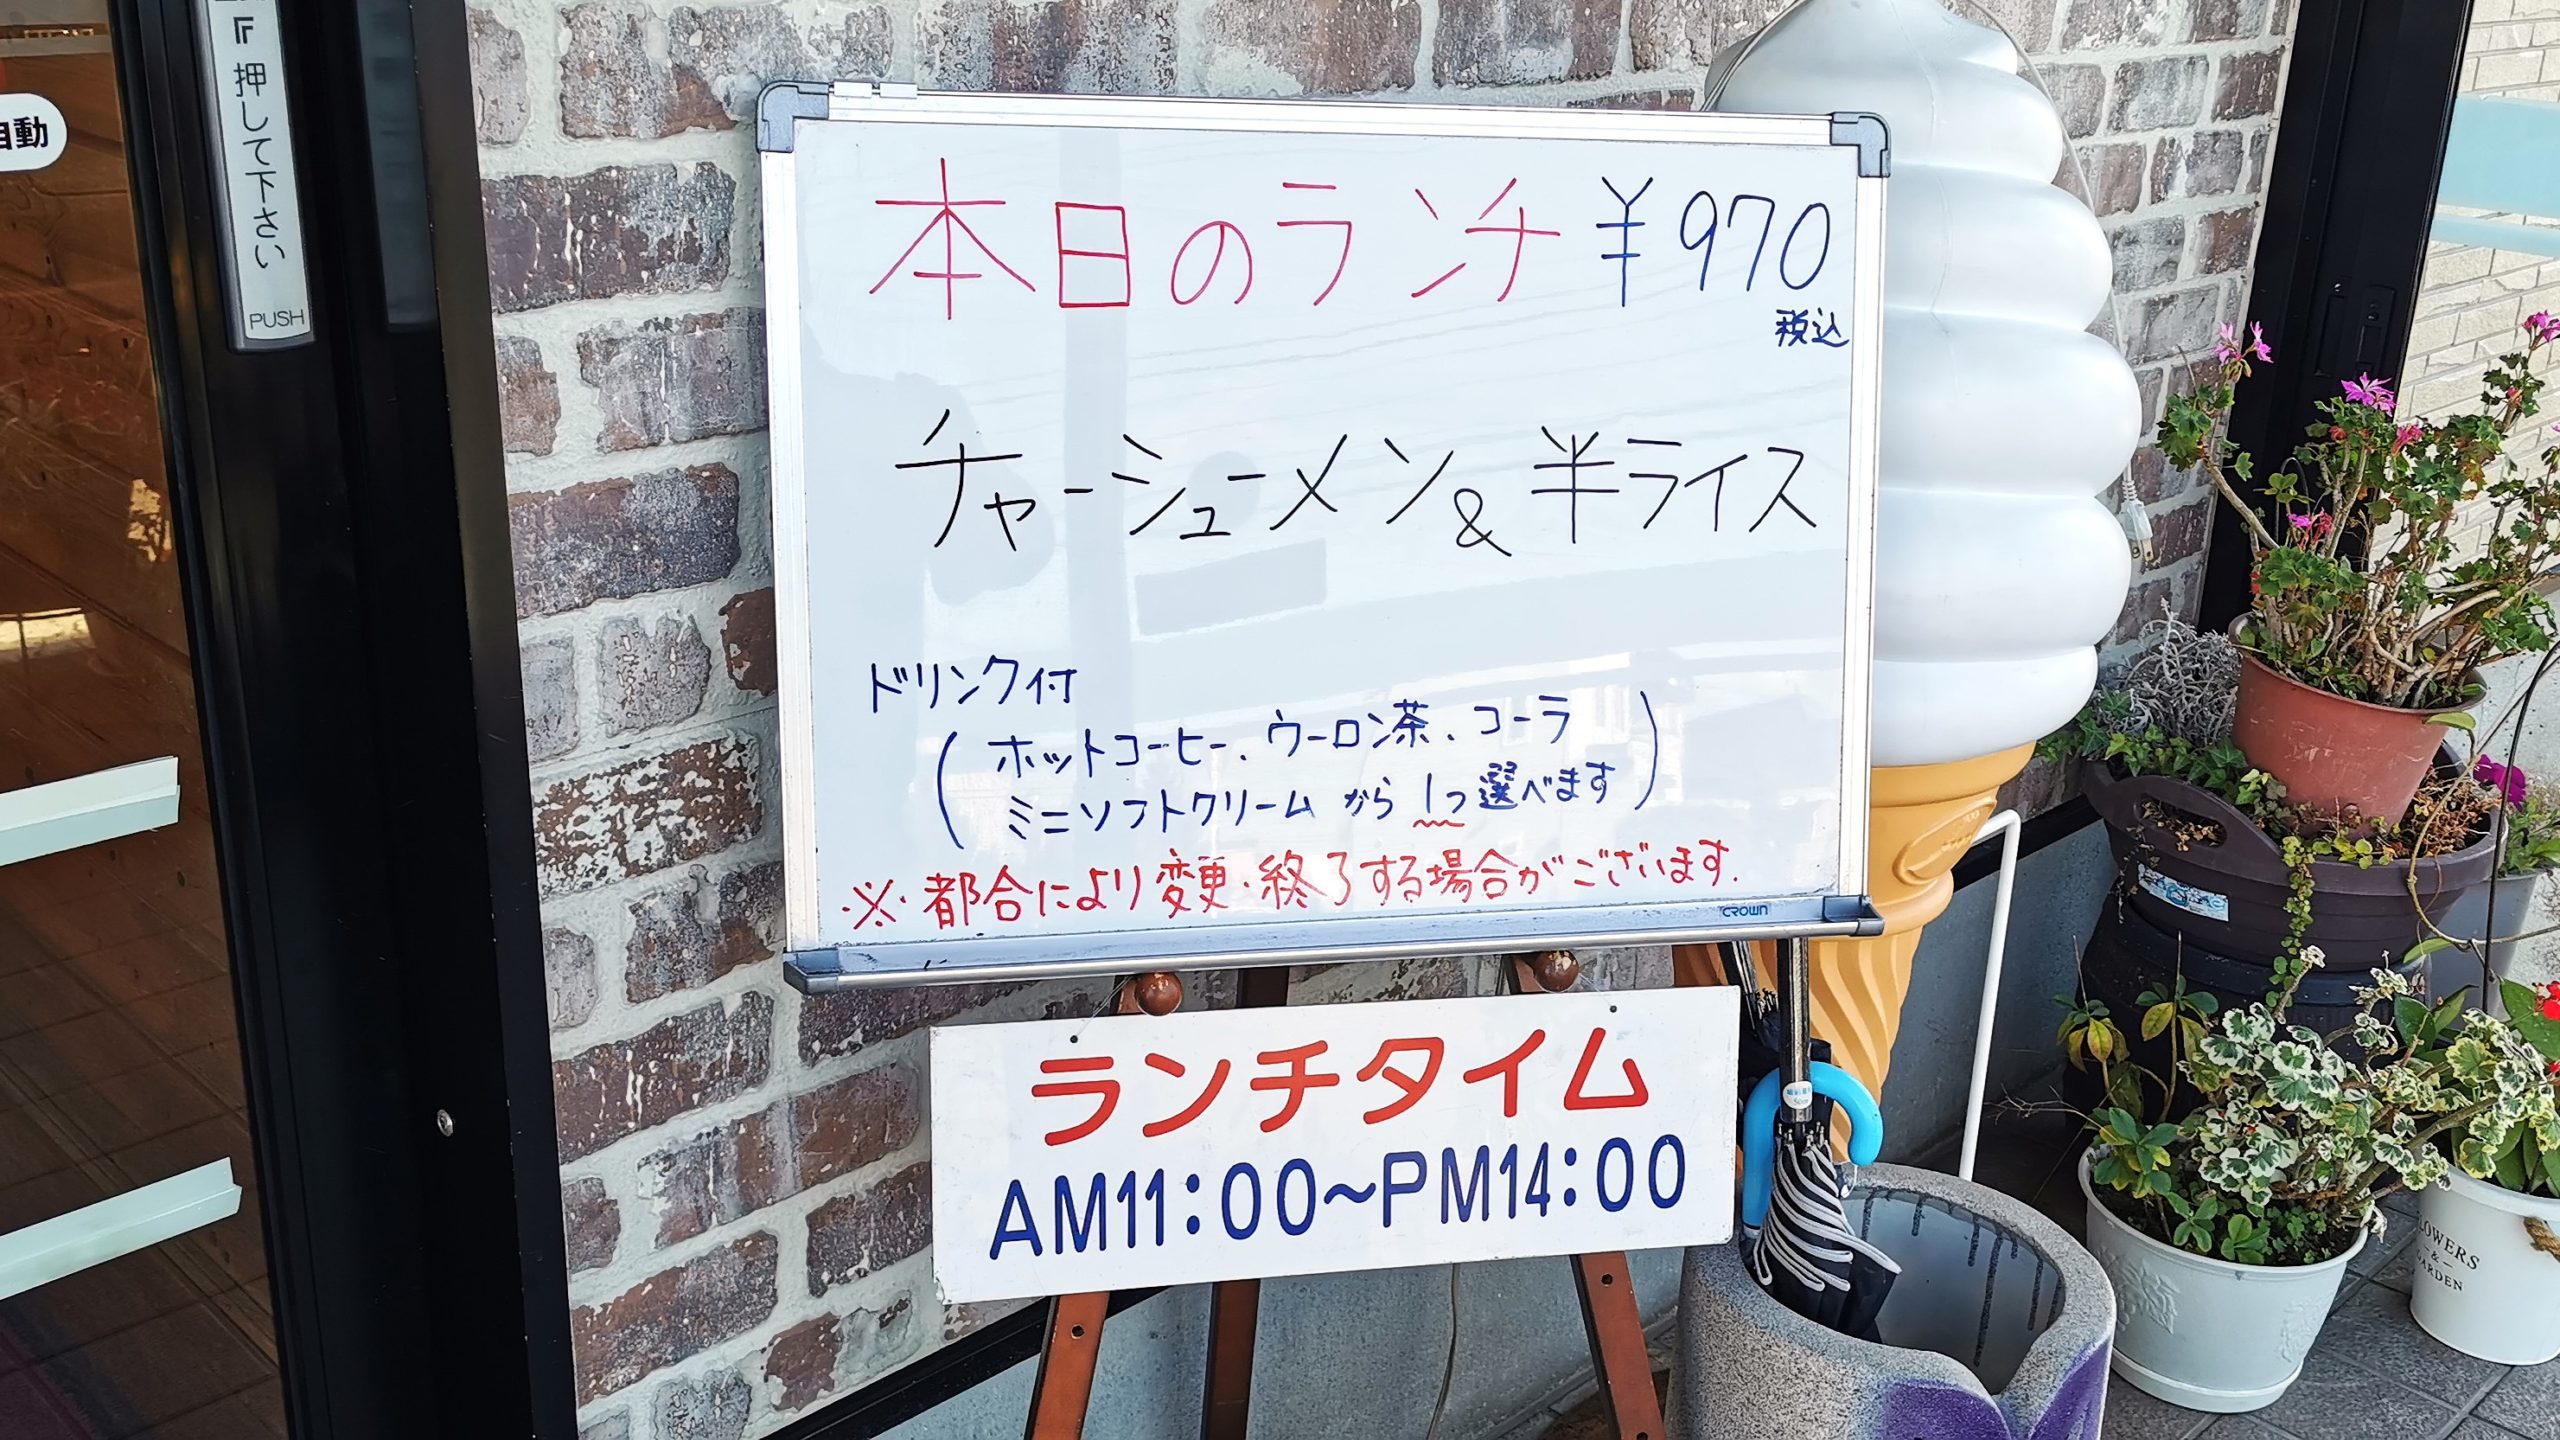 『押して下さい
PUSH
自動
本日のランチ ¥970
税込
チャーシューメン&半ライス
ドリンク付
(ホットコーヒー、ウーロン茶、コーラ
ミニソフトクリームから1つ選べます)
※都合により変更・終了する場合がございます.
CROWN
ランチタイム
AM11:00〜PM14:00
FLOWERS
&
GARDEN